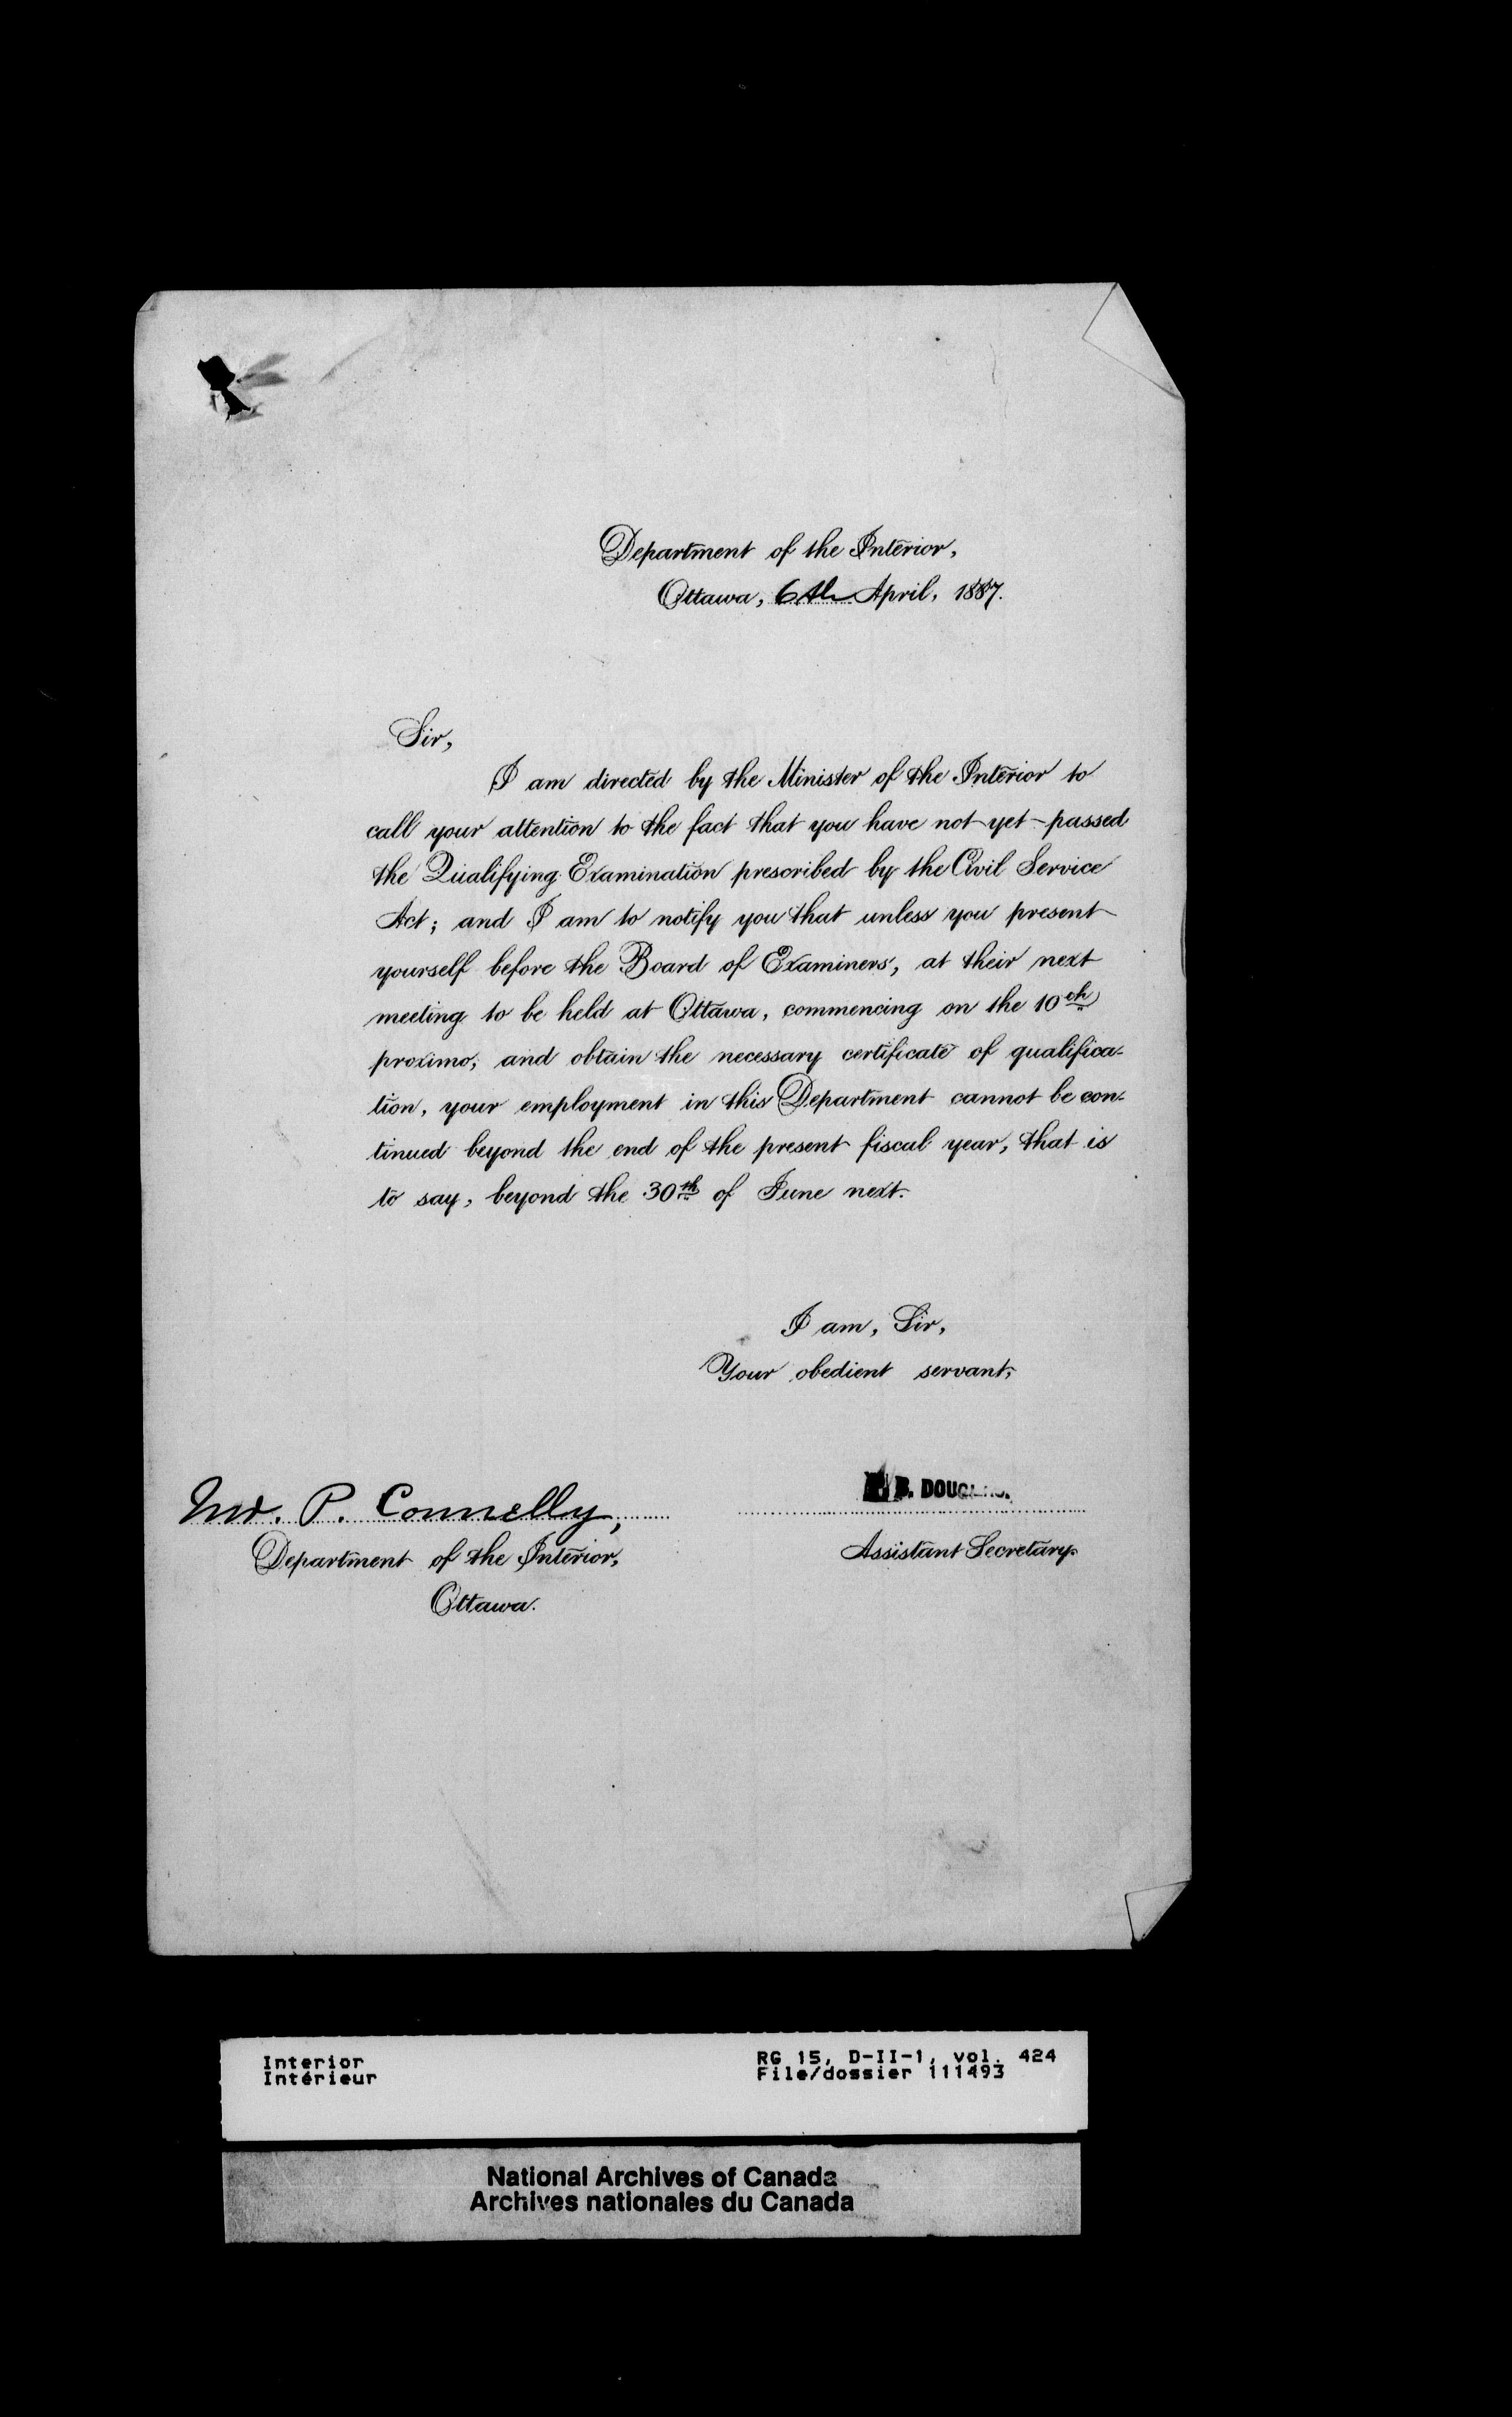 Department of the Interior,
Ottawa, 6th April, 1887.
Sir,
I am directed by the Minister of the Interior to
call your attention to the fact that you have not yet passed
the Qualifying Examination prescribed by the Civil Service
Act; and I am to notify you that unless you present
yourself before the Board of Examiners, at their next
meeting to be held at Ottawa, commencing on the 10th
proximo, and obtain the necessary certificate of qualifica-
tion, your employment in this Department cannot be con-
tinued beyond the end of the present fiscal year, that is
to say, beyond the 30th of June next.
I am, Sir,
Your obedient servant,
B. DOUGLAS.
Mr. P. Connelly,
Assistant Secretary.
Department of the Interior,
Ottawa.
Interior
Intérieur
RG 15, D-II-1, vol. 424
File/dossier 111493
National Archives of Canada
Archives nationales du Canada